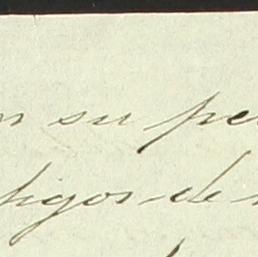 n su pe
higos de